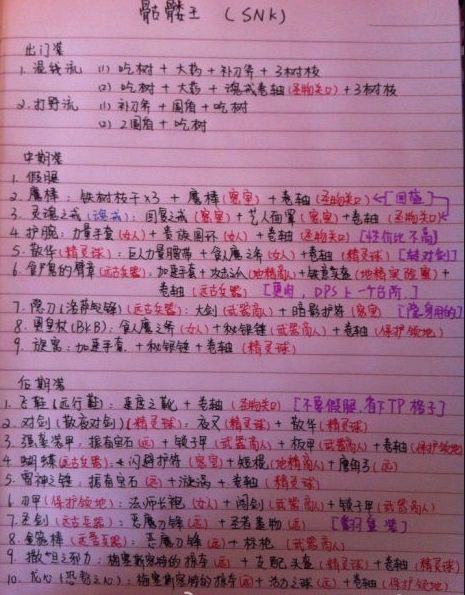 骷髅王 (SNK)
出门装
1. 混线流 (1) 吃树 + 大药 + 补刀斧 + 3树枝
(2) 吃树 + 大药 + 魂戒卷轴(圣物关口) + 3树枝
2. 打野流 (1) 补刀斧 + 圆盾 + 吃树
(2) 2圆盾 + 吃树
中期装
1. 假腿
2. 魔棒: 铁树枝干x3 + 魔棒(密室) + 卷轴(圣物关口) ←[回蓝]
3. 灵魂之戒(魂戒): 回复之戒(密室) + 艺人面罩(密室) + 卷轴(圣物关口)
4. 护腕: 力量手套(女人) + 贵族圆环(女人) + 卷轴(圣物关口) [性价比不高]
5. 散华(精灵球): 巨人力量腰带 + 食人魔之斧(女人) + 卷轴(精灵球) [转对剑]
6. 食尸鬼的臂章(远古兵器): 加速手套 + 攻击之爪(地精商人) + 铁意头盔(地精实验室) +
卷轴(远古兵器) [更肉, DPS上一个台阶]
7. 隐刀(洛萨之锋)(远古兵器): 大剑(武器商人) + 暗影护符(密室) [隐身用的]
8. 黑皇杖(BKB): 食人魔之斧(女人) + 秘银锤(武器商人) + 卷轴(保护领地)
9. 漩涡: 加速手套 + 秘银锤 + 卷轴(精灵球)
后期装
1. 飞鞋(远行鞋): 速度之靴 + 卷轴(圣物关口) [不要假腿, 省下TP格子]
2. 对剑(散夜对剑)(精灵球): 夜叉(精灵球) + 散华(精灵球)
3. 强袭装甲: 振奋宝石(远) + 锁子甲(武器商人) + 板甲(武器商人) + 卷轴(保护领地)
4. 蝴蝶(远古兵器): 闪避护符(密室) + 短棍(地精商人) + 鹰角弓(远)
5. 雷神之锤: 振奋宝石(远) + 漩涡 + 卷轴(精灵球)
6. 刃甲(保护领地): 法师长袍(女人) + 阔剑(武器商人) + 锁子甲(武器商人)
7. 圣剑(远古兵器): 恶魔刀锋(远) + 圣者遗物(远) [翻身装]
8. 金箍棒(远古兵器): 恶魔刀锋(远) + 标枪(武器商人)
9. 撒旦之邪力: 梅塞斯密特的掠夺(远) + 支配头盔(精灵球) + 卷轴(精灵球)
10. 龙心(恐鳌之心): 梅塞斯密特的掠夺(远) + 活力之球(远) + 卷轴(保护领地)